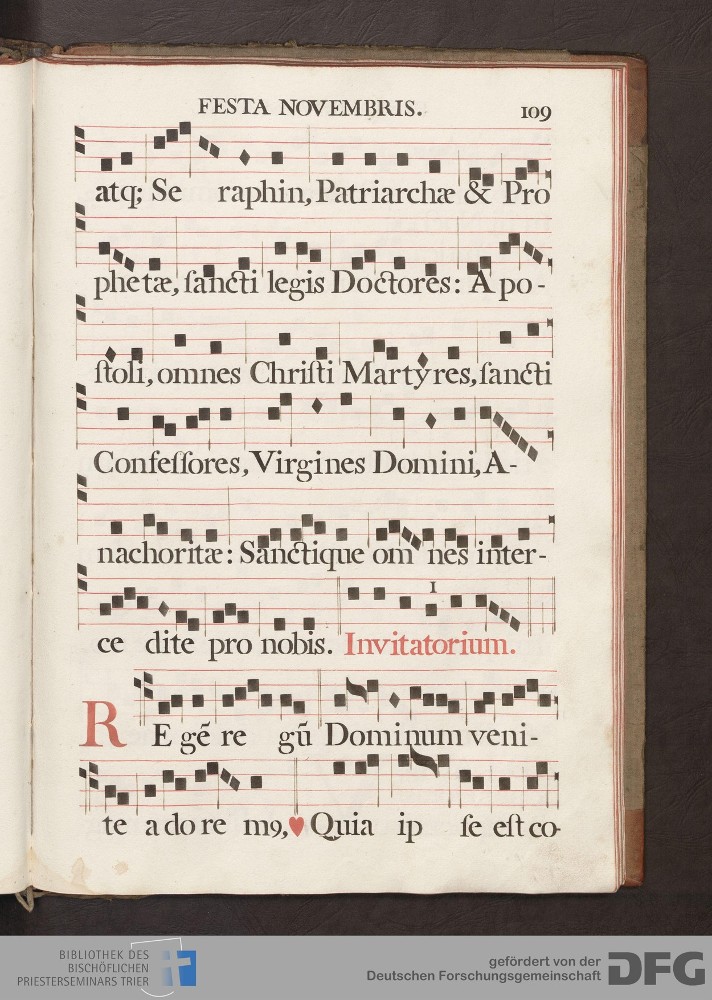 FESTA NOVEMBRIS. 109
atq; Se raphin, Patriarchæ & Pro
phetæ, ſancti legis Doctores: Apo-
ſtoli, omnes Chriſti Martyres, ſancti
Confeſſores, Virgines Domini, A-
nachoritæ: Sanctique om nes inter-
1
ce dite pro nobis. Invitatorium.
REgẽ re gũ Dominum veni-
te adore m9, Quia ip ſe eſt co-
BIBLIOTHEK DES
BISCHÖFLICHEN
PRIESTERSEMINARS TRIER
gefördert von der
Deutschen Forschungsgemeinschaft DFG